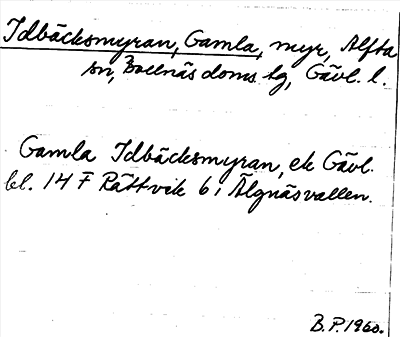 Idbäcksmyran, Gamla, myr, Alfta
sn, Bollnäs doms. tg, Gävl. l.
Gamla Idbäcksmyran, ek Gävl.
bl. 14 F Rättvik 6 i Älgnäsvallen.
B.P. 1960.